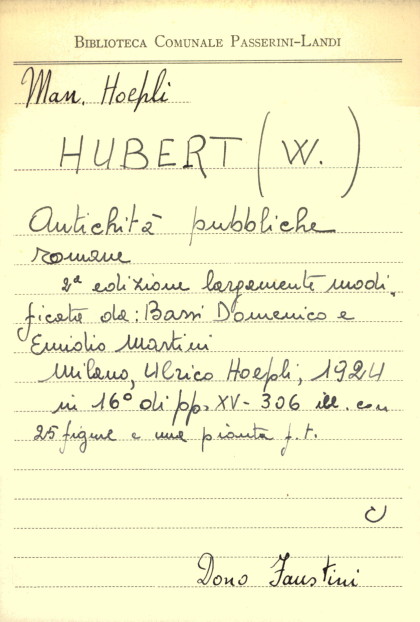 BIBLIOTECA COMUNALE PASSERINI-LANDI
Man. Hoepli
HUBERT (W.)
Antichità pubbliche
romane
2ª edizione largamente modi-
ficata da: Bassi Domenico e
Emidio Martini
Milano, Ulrico Hoepli, 1924
in 16° di pp. XV-306 ill. con
25 figure e una pianta f.t.
Dono Faustini